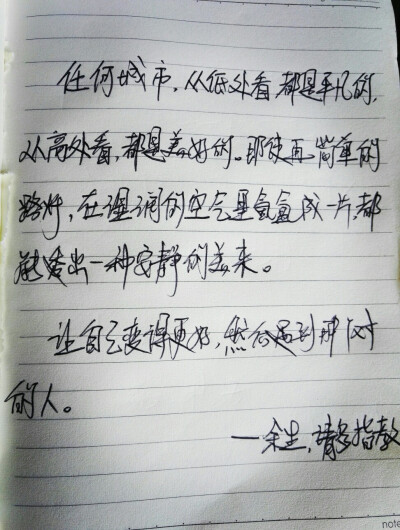 任何城市，从低处看，都是平凡的，
从高处看，都是美好的。即使再简单的
路灯，在湿润的空气里氤氲成一片，都
能透出一种安静的美来。
让自己变得更好，然后遇到那个对
的人。
——余生，请多指教
note